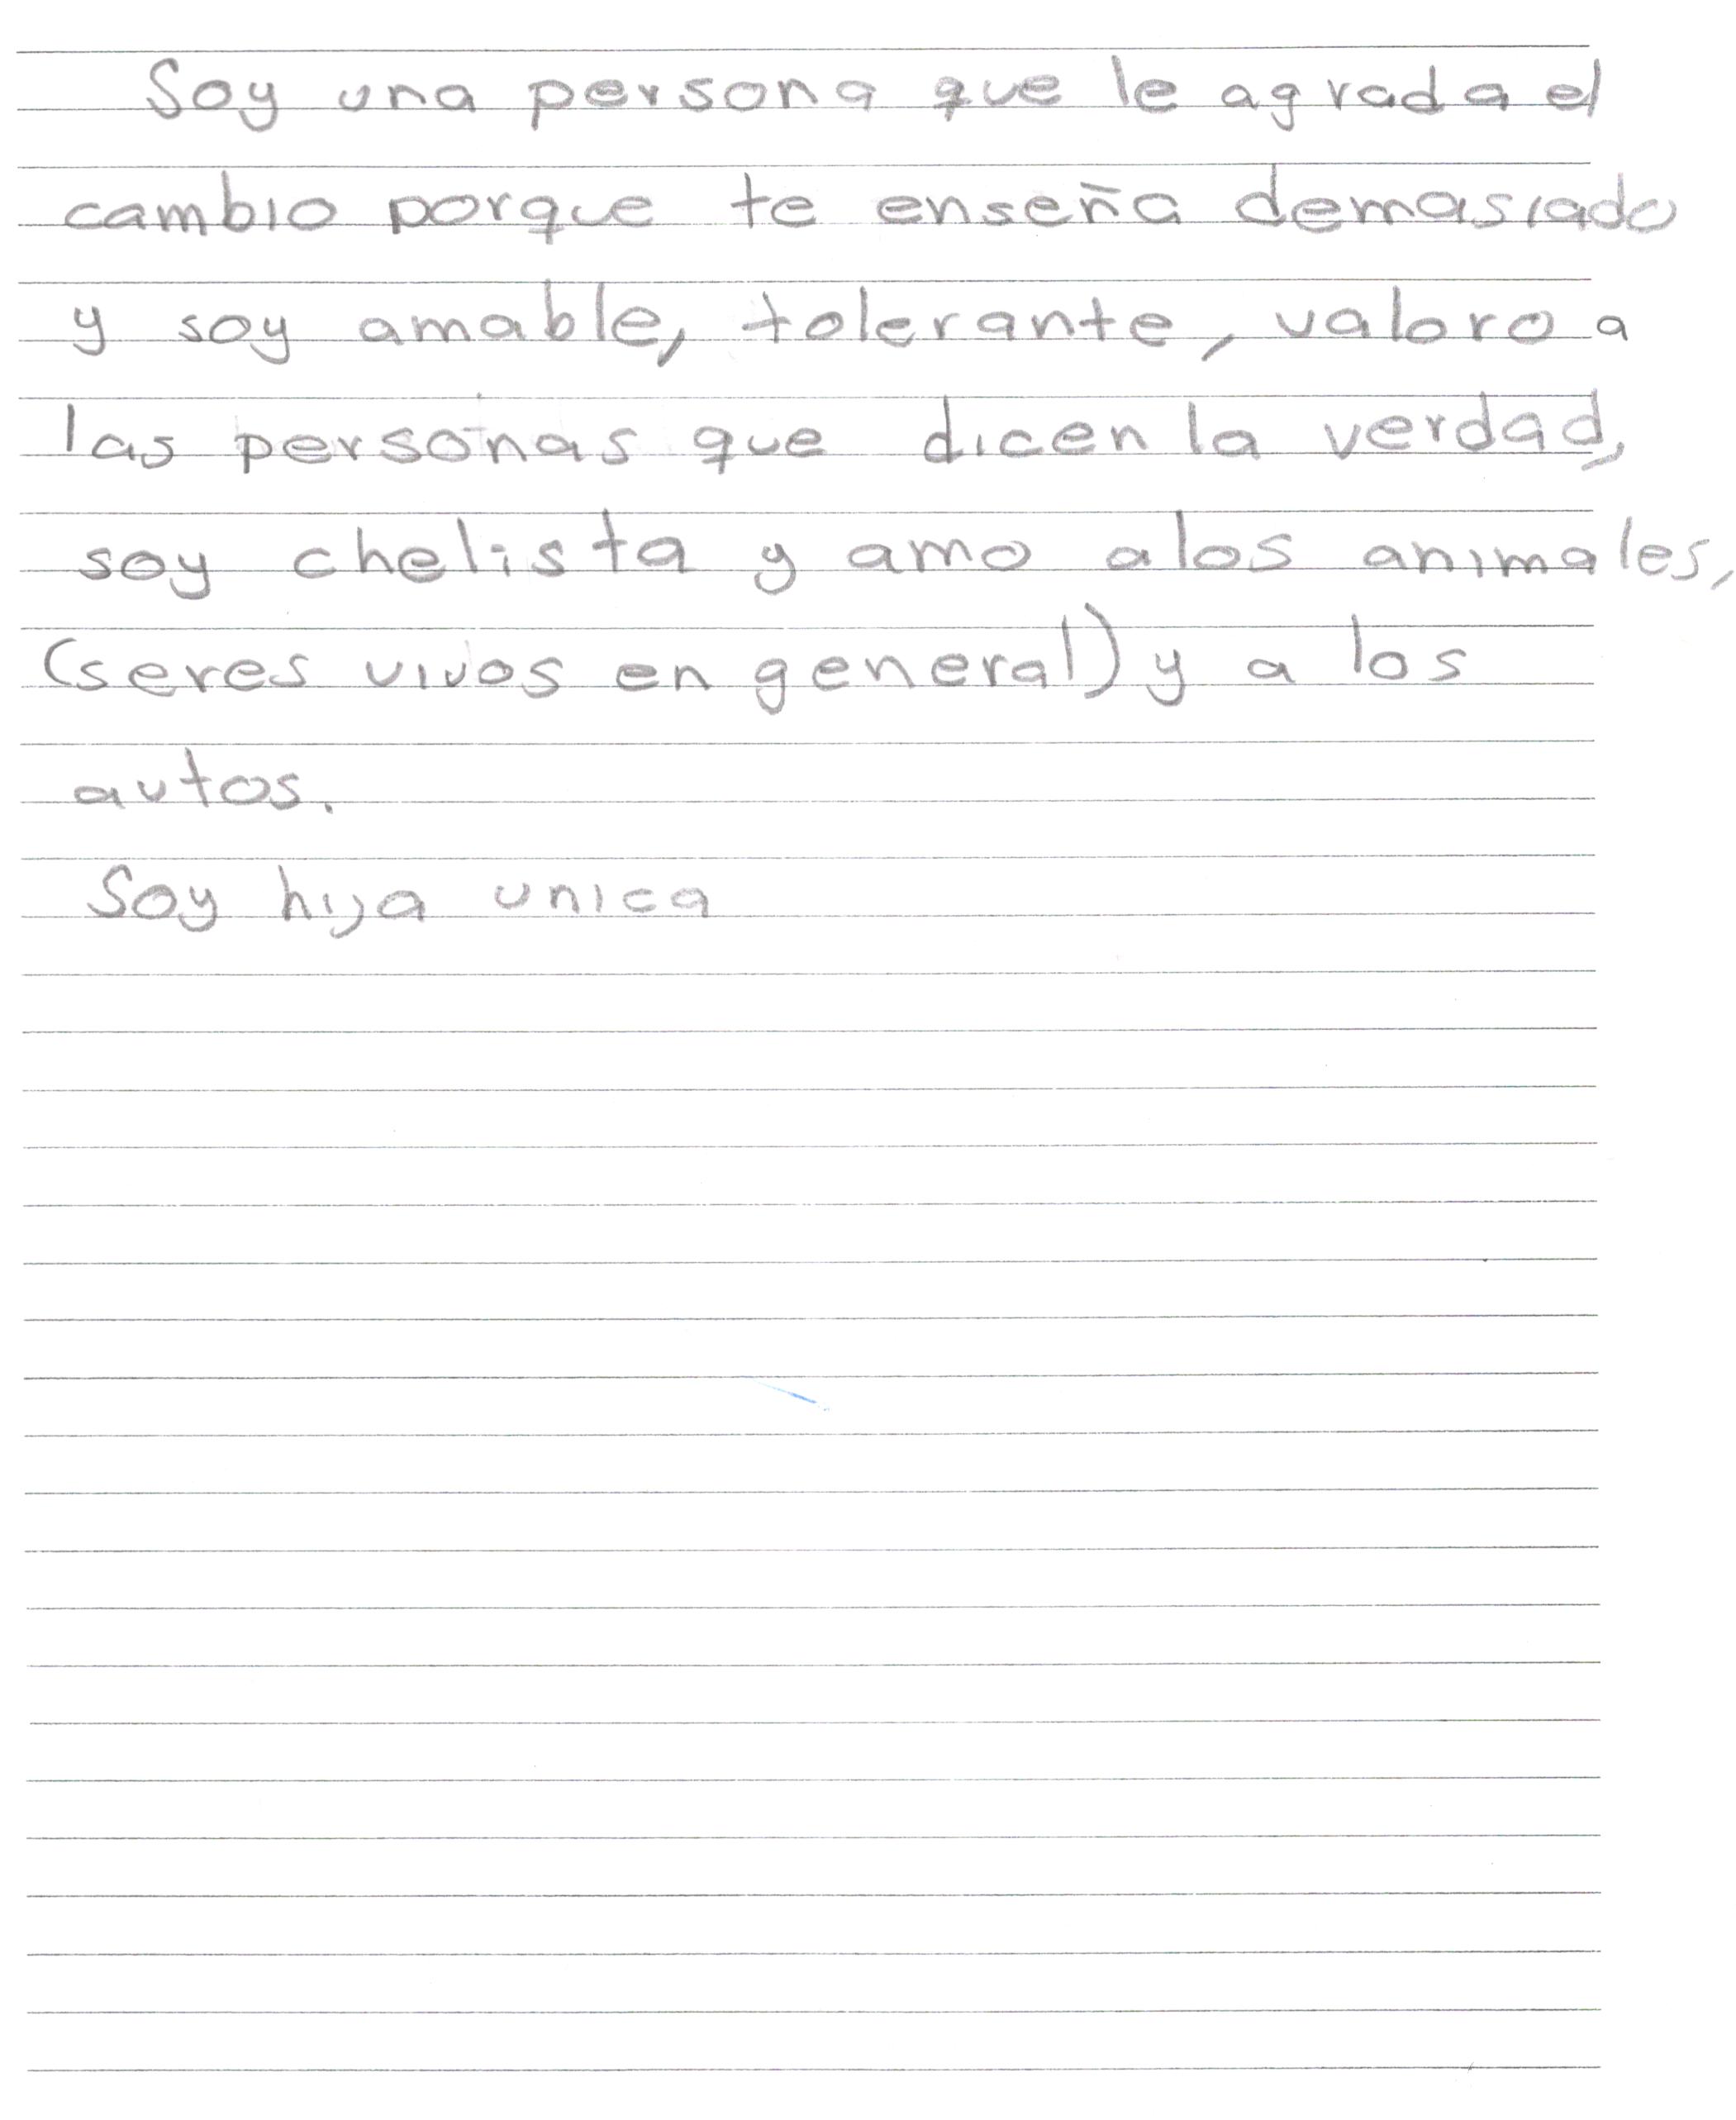 Soy una persona que le agrada el
cambio porque te enseña demasiado
y soy amable, tolerante, valoro a
las personas que dicen la verdad,
soy chelista y amo alos animales,
(seres vivos en general) y a los
autos.
Soy hija unica